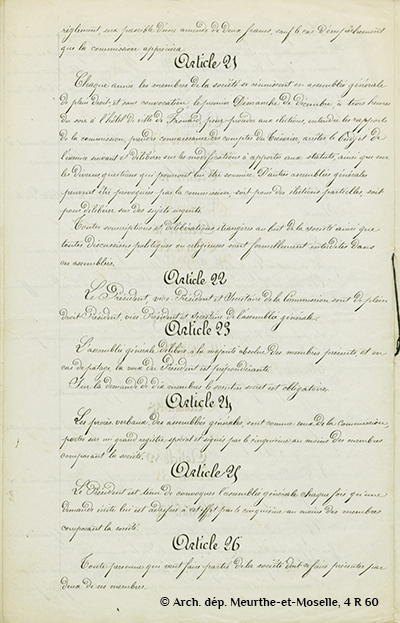 règlement, sera passible d'une amende de deux francs, sauf le cas d'empêchement
que la commission appréciera.
Article 21
Chaque année les membres de la société se réunissent en assemblée générale
de plein droit et sans convocation le premier Dimanche de Décembre à trois heures
du soir à l'hôtel de ville de Frouard, pour procéder aux élections, entendre les rapports
de la commission, prendre connaissance des comptes du Trésorier, arrêter le budget de
l'exercice suivant et délibérer sur les modifications à apporter aux statuts, ainsi que sur
les diverses questions qui pourront lui être soumises. D'autres assemblées générales
peuvent être provoquées par la commission, soit pour des élections partielles soit
pour délibérer sur des sujets urgents.
Toutes souscriptions et délibérations étrangères au but de la société ainsi que
toutes discussions politiques ou religieuses sont formellement interdites dans
ces assemblées.
Article 22
Le Président, vice-Président et Secrétaire de la Commission sont de plein
droit Président, vice Président et Secrétaire de l'assemblée générale.
Article 23
L'assemblée générale délibère à la majorité absolue des membres présents et en
cas de partage la voix du Président est prépondérante.
Sur la demande de dix membres le scrutin secret est obligatoire.
Article 24
Les procès verbaux des assemblées générales sont comme ceux de la Commission
portés sur un grand registre spécial et signés par le cinquième au moins des membres
composant la société.
Article 25
Le Président est tenu de convoquer l'assemblée générale chaque fois qu'une
demande écrite lui est adressée à cet effet par le cinquième au moins des membres
composant la société.
Article 26
Toute personne qui veut faire partie de la société doit se faire présenter par
deux de ses membres.
© Arch. dép. Meurthe-et-Moselle, 4 R 60